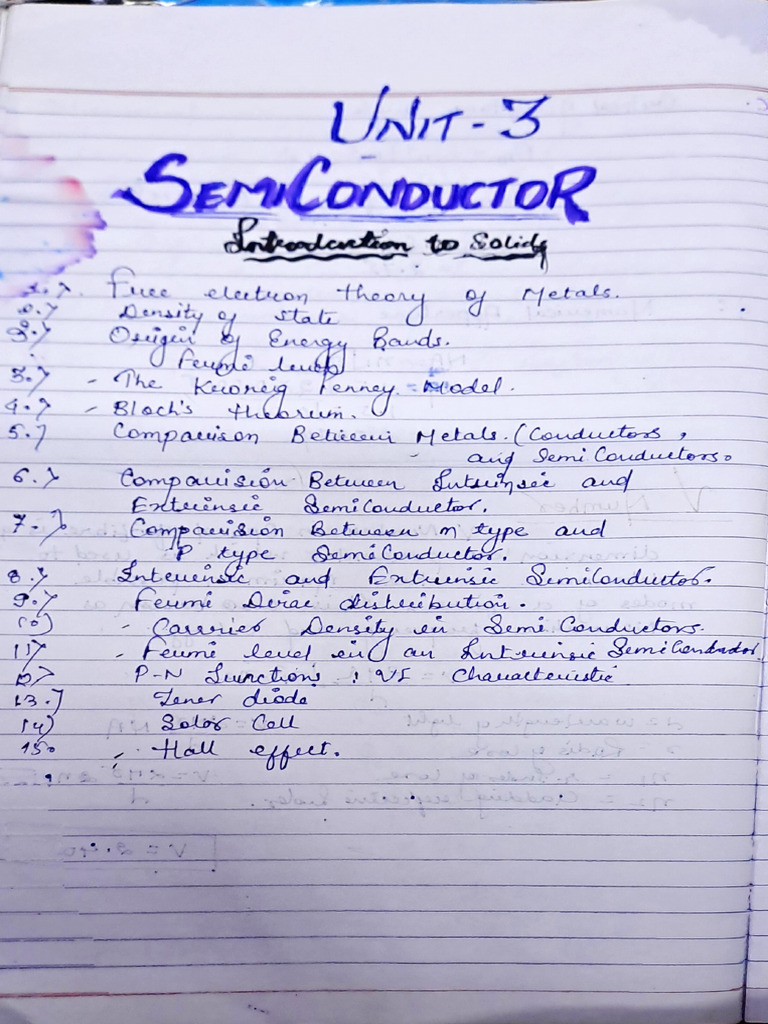 UNIT-3
SEMICONDUCTOR
Introduction to Solids
Free electron theory of Metals.
Density of state
Origin of Energy Bands.
Fermi level
3.> - The Kronig Penney Model.
4.> - Bloch's theorum.
5.> Comparison Between Metals. (Conductors,
and SemiConductors.
6.> Comparision Between Intrinsic and
Extrinsic SemiConductor.
7.> Comparision Between n type and
P type SemiConductor.
8.> Interinsic and Extrinsic SemiConductor.
9.> Fermi Dirac distribution.
10) - Carrier Density in SemiConductors.
11) - Fermi level in an Intrinsic SemiConductor.
12) P-N Junctions : VI Characteristic
13.) Zener diode
14) Solar Cell
15. - Hall effect.